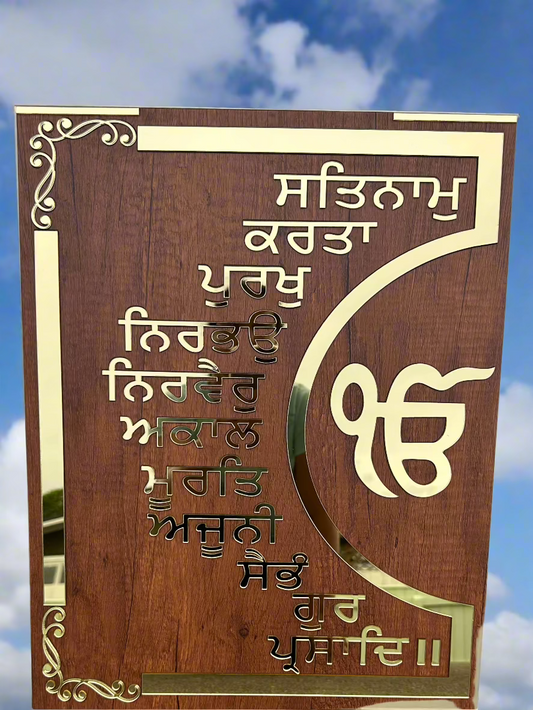 ਸਤਿਨਾਮੁ
ਕਰਤਾ
ਪੁਰਖੁ
ਨਿਰਭਉ
ਨਿਰਵੈਰੁ
ਅਕਾਲ
ਮੂਰਤਿ
ਅਜੂਨੀ
ਸੈਭੰ
ਗੁਰ
ਪ੍ਰਸਾਦਿ॥
ੴ